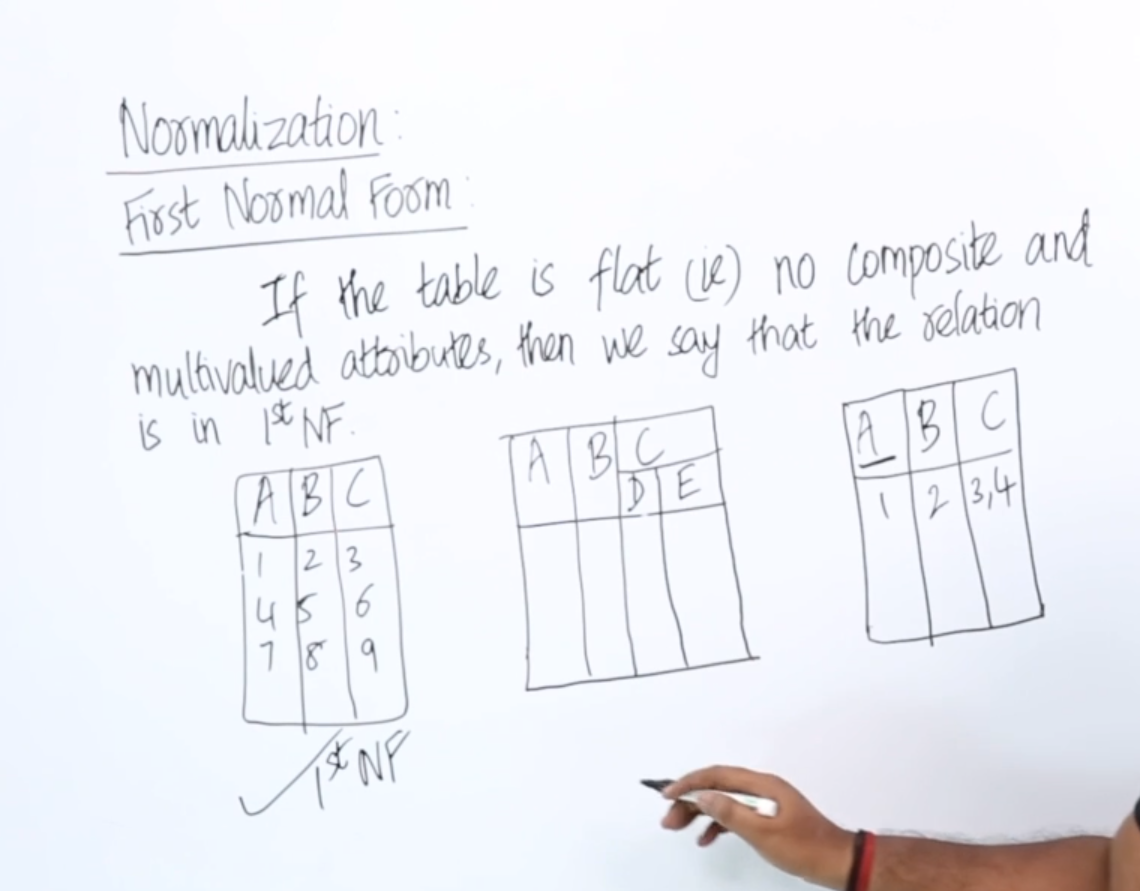 Normalization:
First Normal Form:
If the table is flat (ie) no composite and
multivalued attributes, then we say that the relation
is in 1st NF.
A B C
1 2 3
4 5 6
7 8 9
1st NF
A B C
D E
A B C
1 2 3,4